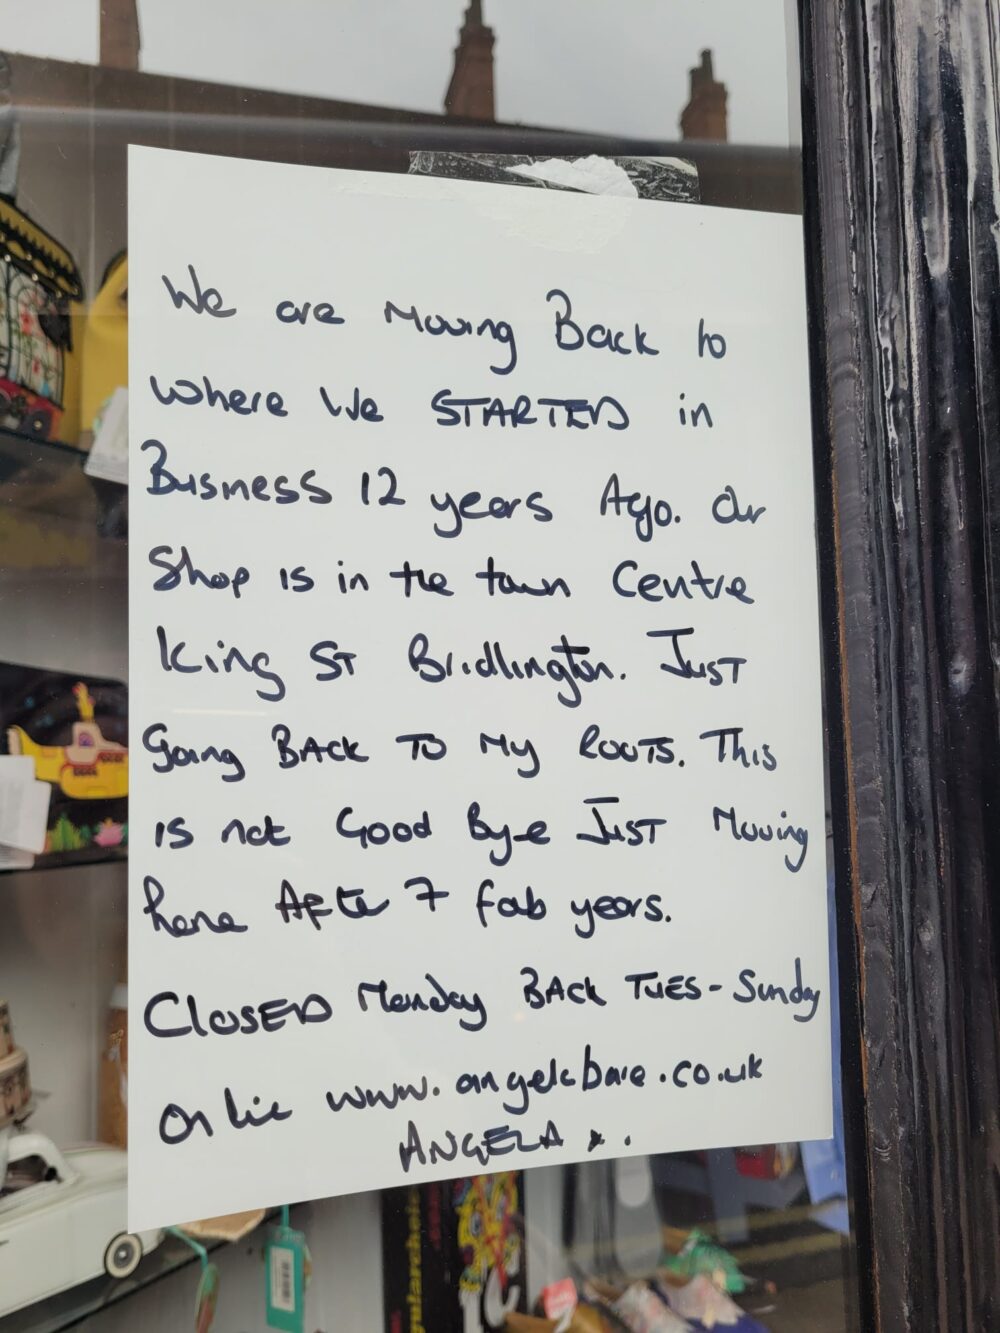 We are Moving Back to
where We STARTED in
Business 12 years Ago. Our
Shop is in the town Centre
King ST Bridlington. JuST
Going BACK TO My ROOTS. This
is not Good Bye JuST Moving
here AFter 7 fab years.
CLOSED Monday BACK TUES - Sunday
On line www.angelabare.co.uk
ANGELA x.